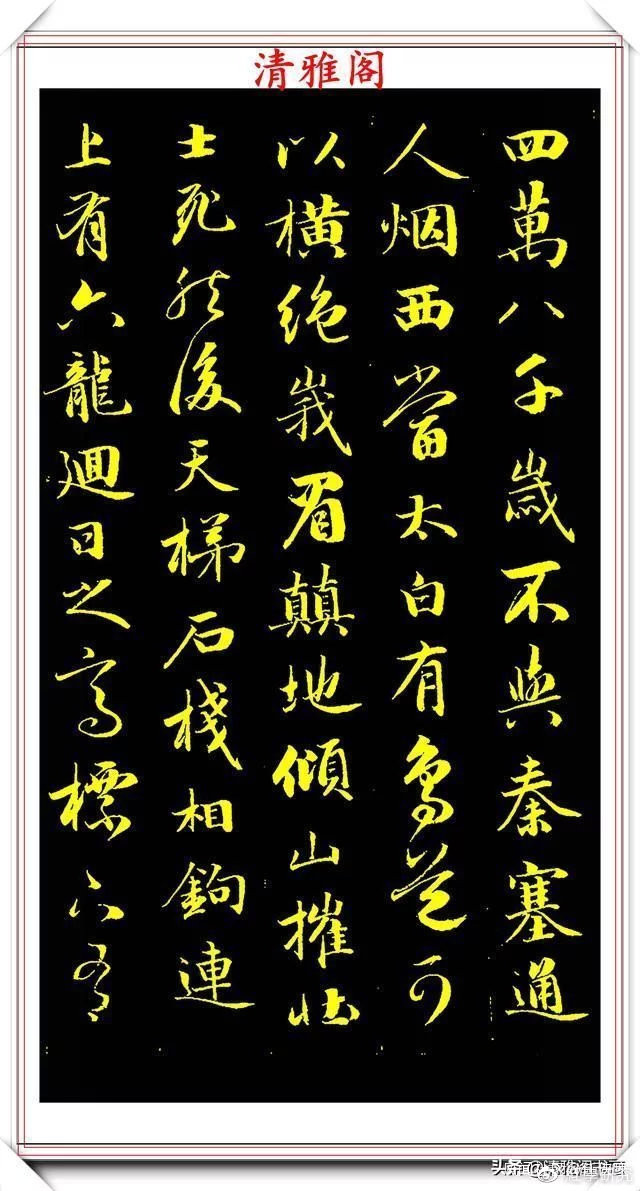 清雅阁
四萬八千歲不與秦塞通
人烟西當太白有鳥道可
以橫絕峩眉顛地傾山摧壯
士死然後天梯石棧相鉤連
上有六龍迴日之高標下有
头条@清雅阁书画